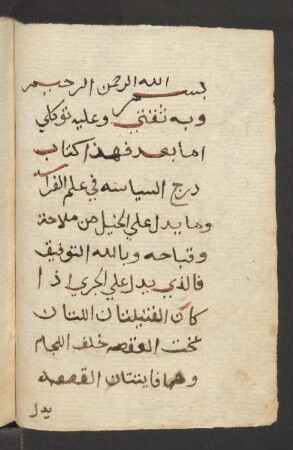 بسم الله الرحمن الرحيم
وبه ثقتي وعليه توكلي
اما بعد فهذا كتاب
درج السياسه في علم الفراسه
وما يدل علي الخيل من ملاحة
وقباحه وبالله التوفيق
فالذي يدل علي الجري اذا
كان الفتيلتان اللتان
تحت العقصه خلف اللجام
وهما
يدل